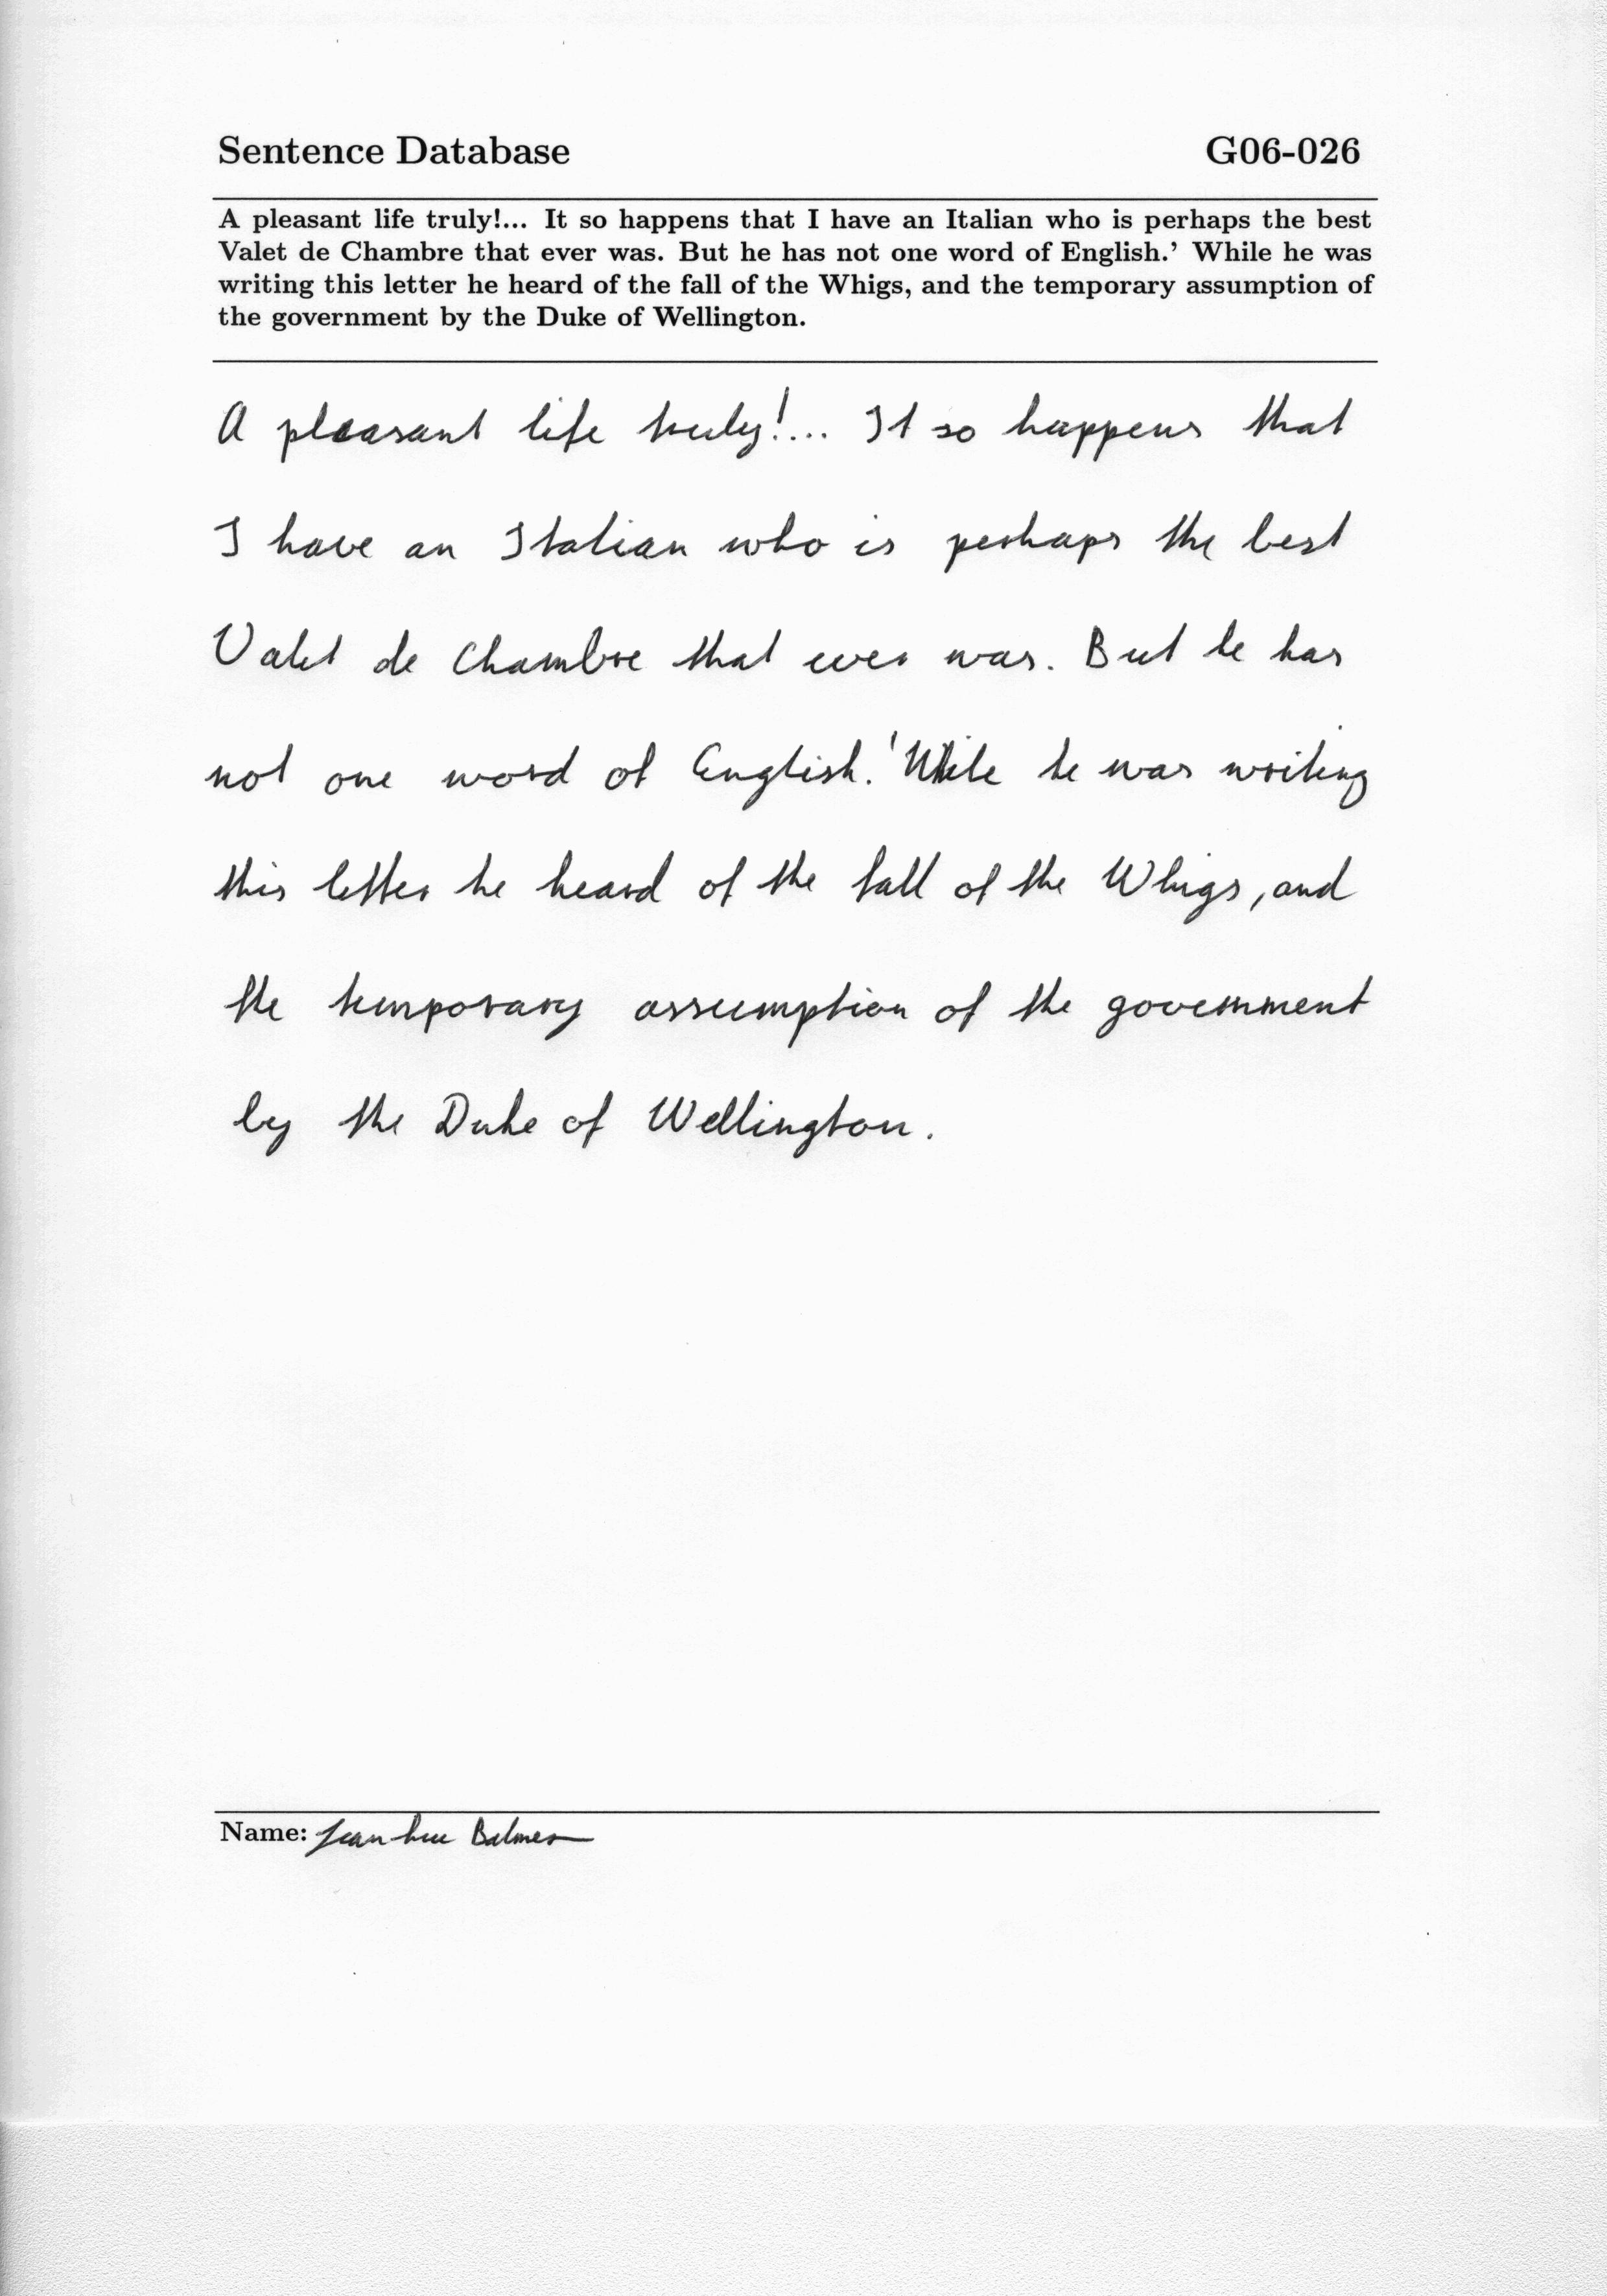 Sentence Database G06-026
A pleasant life truly!... It so happens that I have an Italian who is perhaps the best
Valet de Chambre that ever was. But he has not one word of English.’ While he was
writing this letter he heard of the fall of the Whigs, and the temporary assumption of
the government by the Duke of Wellington.
A pleasant life truly!... It so happens that
I have an Italian who is perhaps the best
Valet de Chambre that ever was. But he has
not one word of English.' While he was writing
this letter he heard of the fall of the Whigs, and
the temporary assumption of the government
by the Duke of Wellington.
Name: Jean-Luc